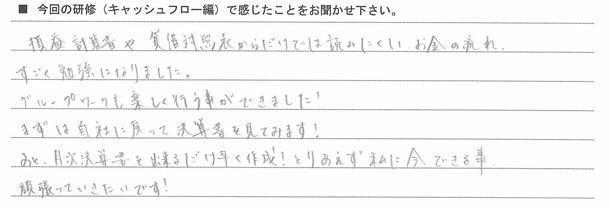 ■ 今回の研修（キャッシュフロー編）で感じたことをお聞かせ下さい。
損益計算書や貸借対照表からだけでは読みにくいお金の流れ、
すごく勉強になりました。
グループワークも楽しく行う事ができました！
まずは自社に戻って決算書を見てみます！
あと、月次決算書を出来るだけ早く作成！とりあえず私に今できる事、
頑張っていきたいです！